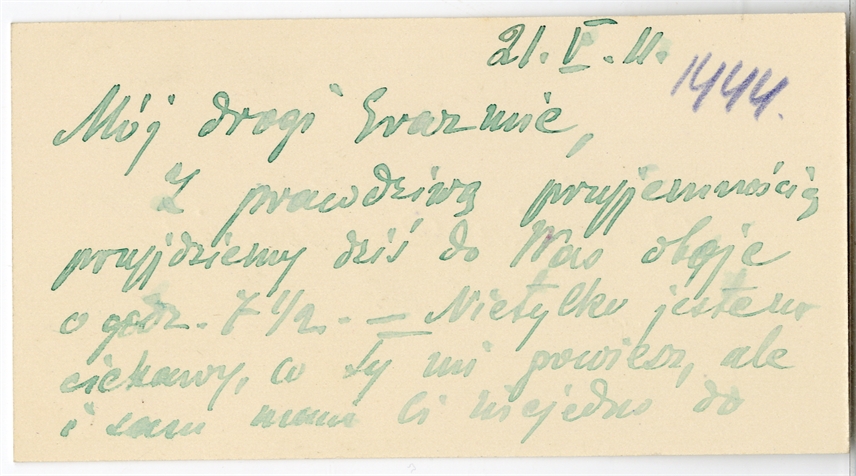 21. V. 11.
1444.
Mój drogi Erazmie,
Z prawdziwą przyjemnością
przyjdziemy dziś do Was oboje
o godz. 7 1/2. — Nietylko jestem
ciekawy, co Ty mi powiesz, ale
i sam mam Ci niejedno do